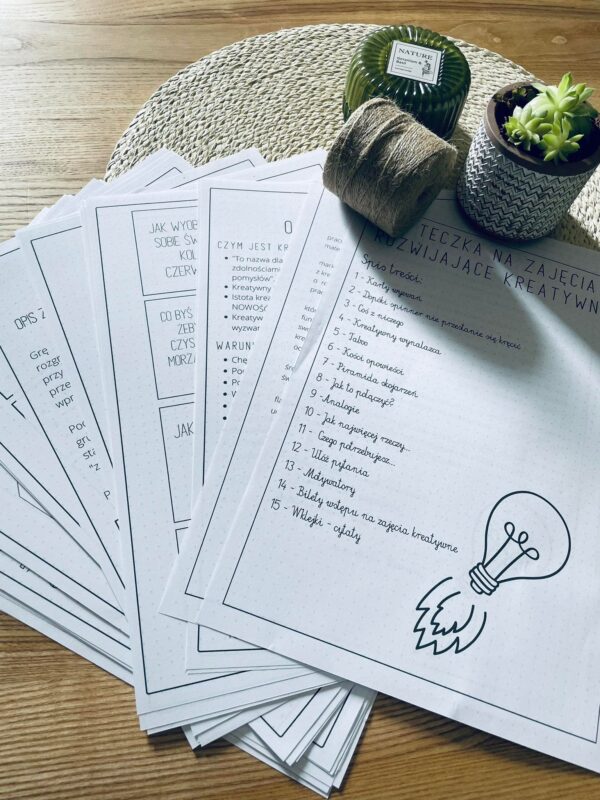 NATURE
TECZKA NA ZAJĘCIA
ROZWIJAJĄCE KREATYWN
Spis treści:
1 - Karty wyzwań
2 - Dopóki spinner nie przestanie się kręcić
3 - Coś z niczego
4 - Kreatywny wynalazca
5 - Taboo
6 - Kości opowieści
7 - Piramida skojarzeń
8 - Jak to połączyć?
9 - Analogie
10 - Jak najwięcej rzeczy...
11 - Czego potrzebujesz...
12 - Ułóż pytania
13 - Motywatory
14 - Bilety wstępu na zajęcia kreatywne
15 - Wklejki - cytaty
O
CZYM JEST KR
"To nazwa dla
zdolnościami
pomysłów".
Kreatywny
Istota krea
NOWOŚĆ
Kreatyw
wyzwań
WARUN
JAK WYOB
SOBIE ŚW
KOL
CZERW
CO BYŚ
ŻEBY
CZYS
MORZA
JAK
OPIS Z
Grę
rozgr
przy
prze
wpr